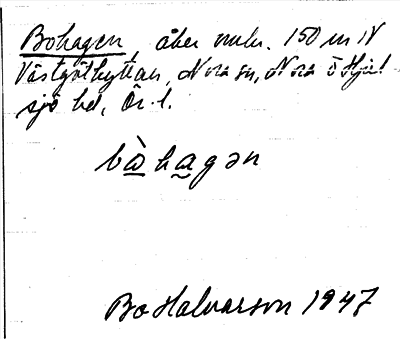 Bohagen, åker mellr. 150 m N
Västgöthyttan, Nora sn, Nora o Hjul-
sjö bd, Ör. l.
bòhagən
Bo Halvarson 1947